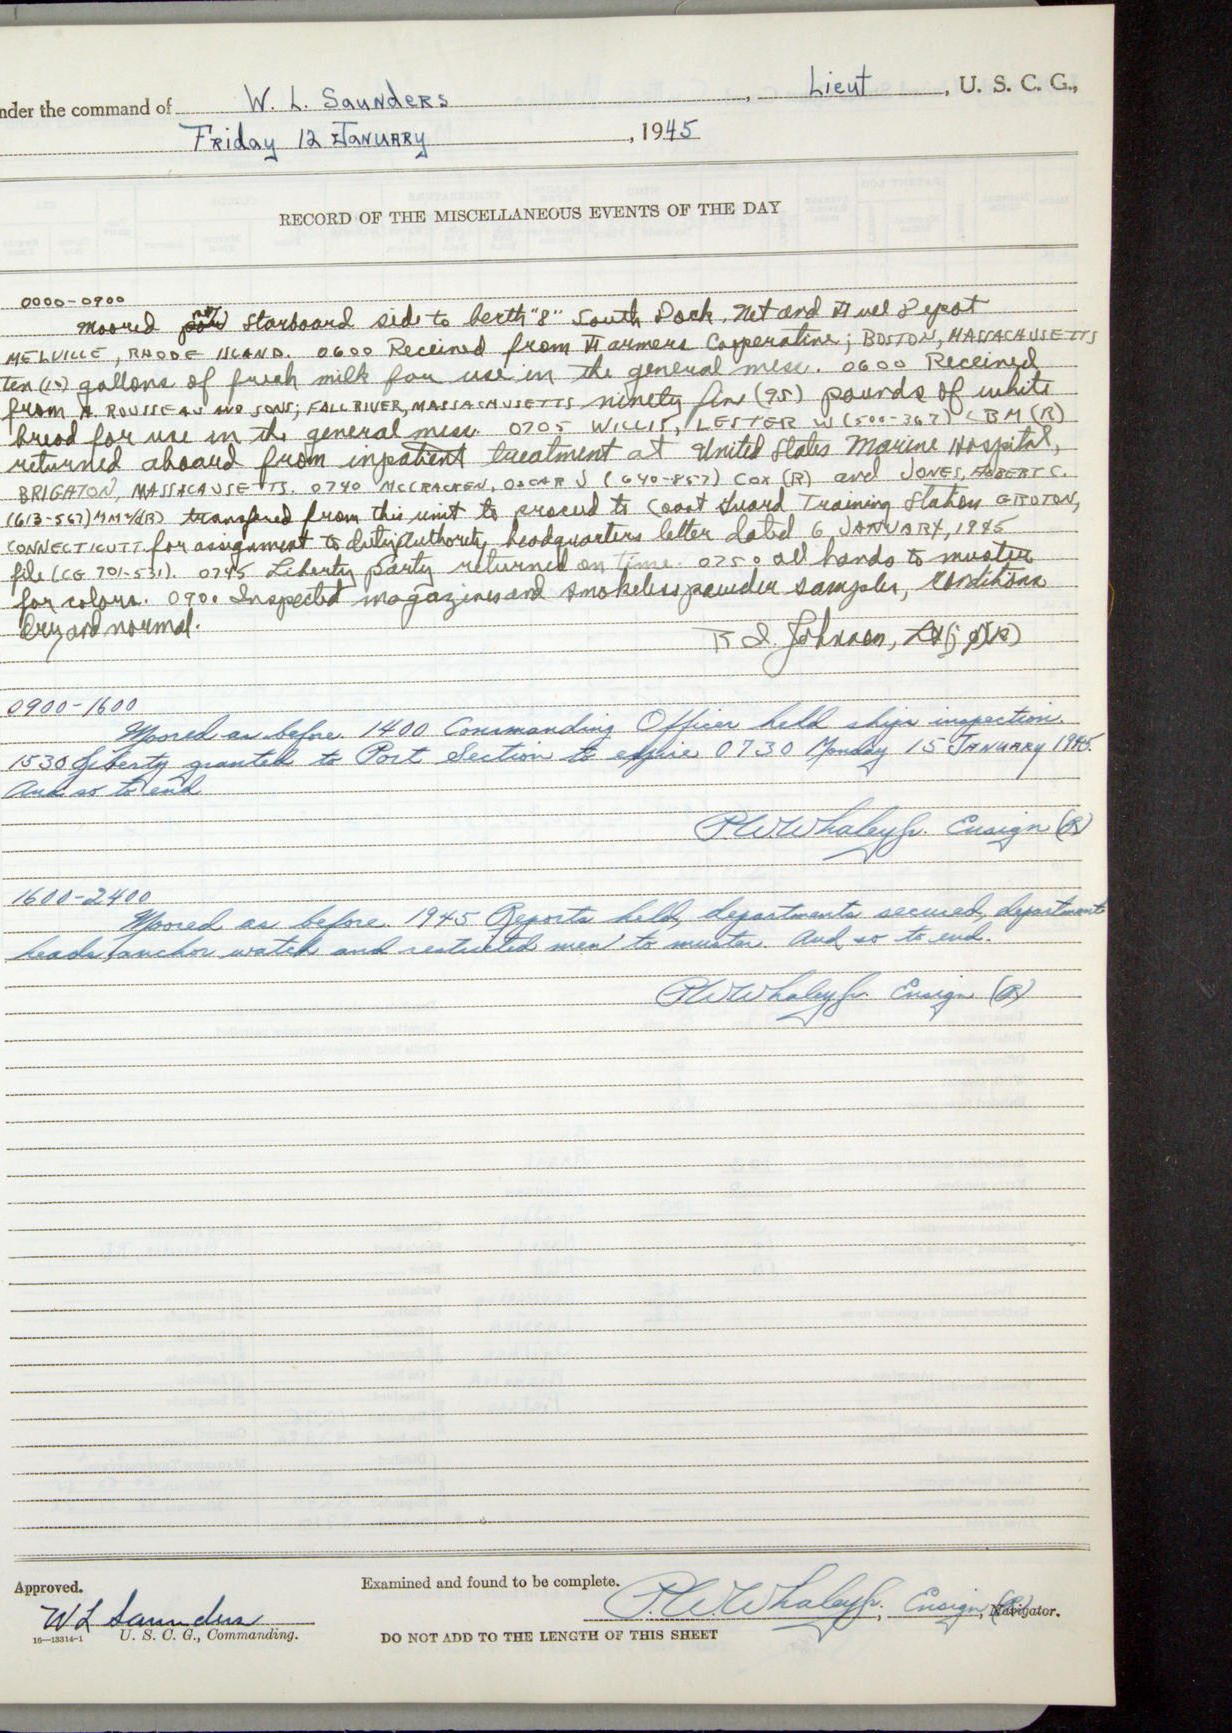 nder the command of W. L. Saunders, Lieut, U. S. C. G.,
Friday 12 January, 1945
RECORD OF THE MISCELLANEOUS EVENTS OF THE DAY
0000-0900
Moored starboard side to berth "8" South Dock, Net and Fuel Depot
MELVILLE, RHODE ISLAND. 0600 Received from Farmers Cooperative; BOSTON, MASSACHUSETTS
Ten (10) gallons of fresh milk for use in the general mess. 0600 Received
from A. ROUSSEAU AND SONS; FALL RIVER, MASSACHUSETTS ninety five (95) pounds of white
bread for use in the general mess. 0705 WILLIS, LESTER W (500-367) CBM (R)
returned aboard from inpatient treatment at United States Marine Hospital,
BRIGHTON, MASSACAUSETTS. 0740 MCCRACKEN, OSCAR J (640-857) COX (R) and JONES, ROBERT C.
(613-567) transfered from this unit to proceed to Coast Guard Training Station GROTON,
CONNECTICUTT for assignment to duty, Authority, headquarters letter dated 6 JANUARY, 1945
file (CG 701-531). 0745 Liberty party returned on time. 0750 all hands to muster
for colors. 0900 Inspected magazines and smokeless powder samples, conditions
dry and normal.
R I. Johnson, Lt(jg)(R)
0900-1600
Moored as before. 1400 Commanding Officer held ships inspection
1530 Liberty granted to Port Section to expire 0730 Monday 15 January 1945.
And so to end
P.W. Whaley Jr. Ensign (R)
1600-2400
Moored as before. 1945 Reports held, departments secured, department
heads, anchor watch and restricted men to muster. And so to end.
P.W. Whaley Jr. Ensign (R)
Approved.
Examined and found to be complete.
W L Saunders
P.W. Whaley Jr., Ensign (R), Navigator.
16—13314-1
U. S. C. G., Commanding.
DO NOT ADD TO THE LENGTH OF THIS SHEET